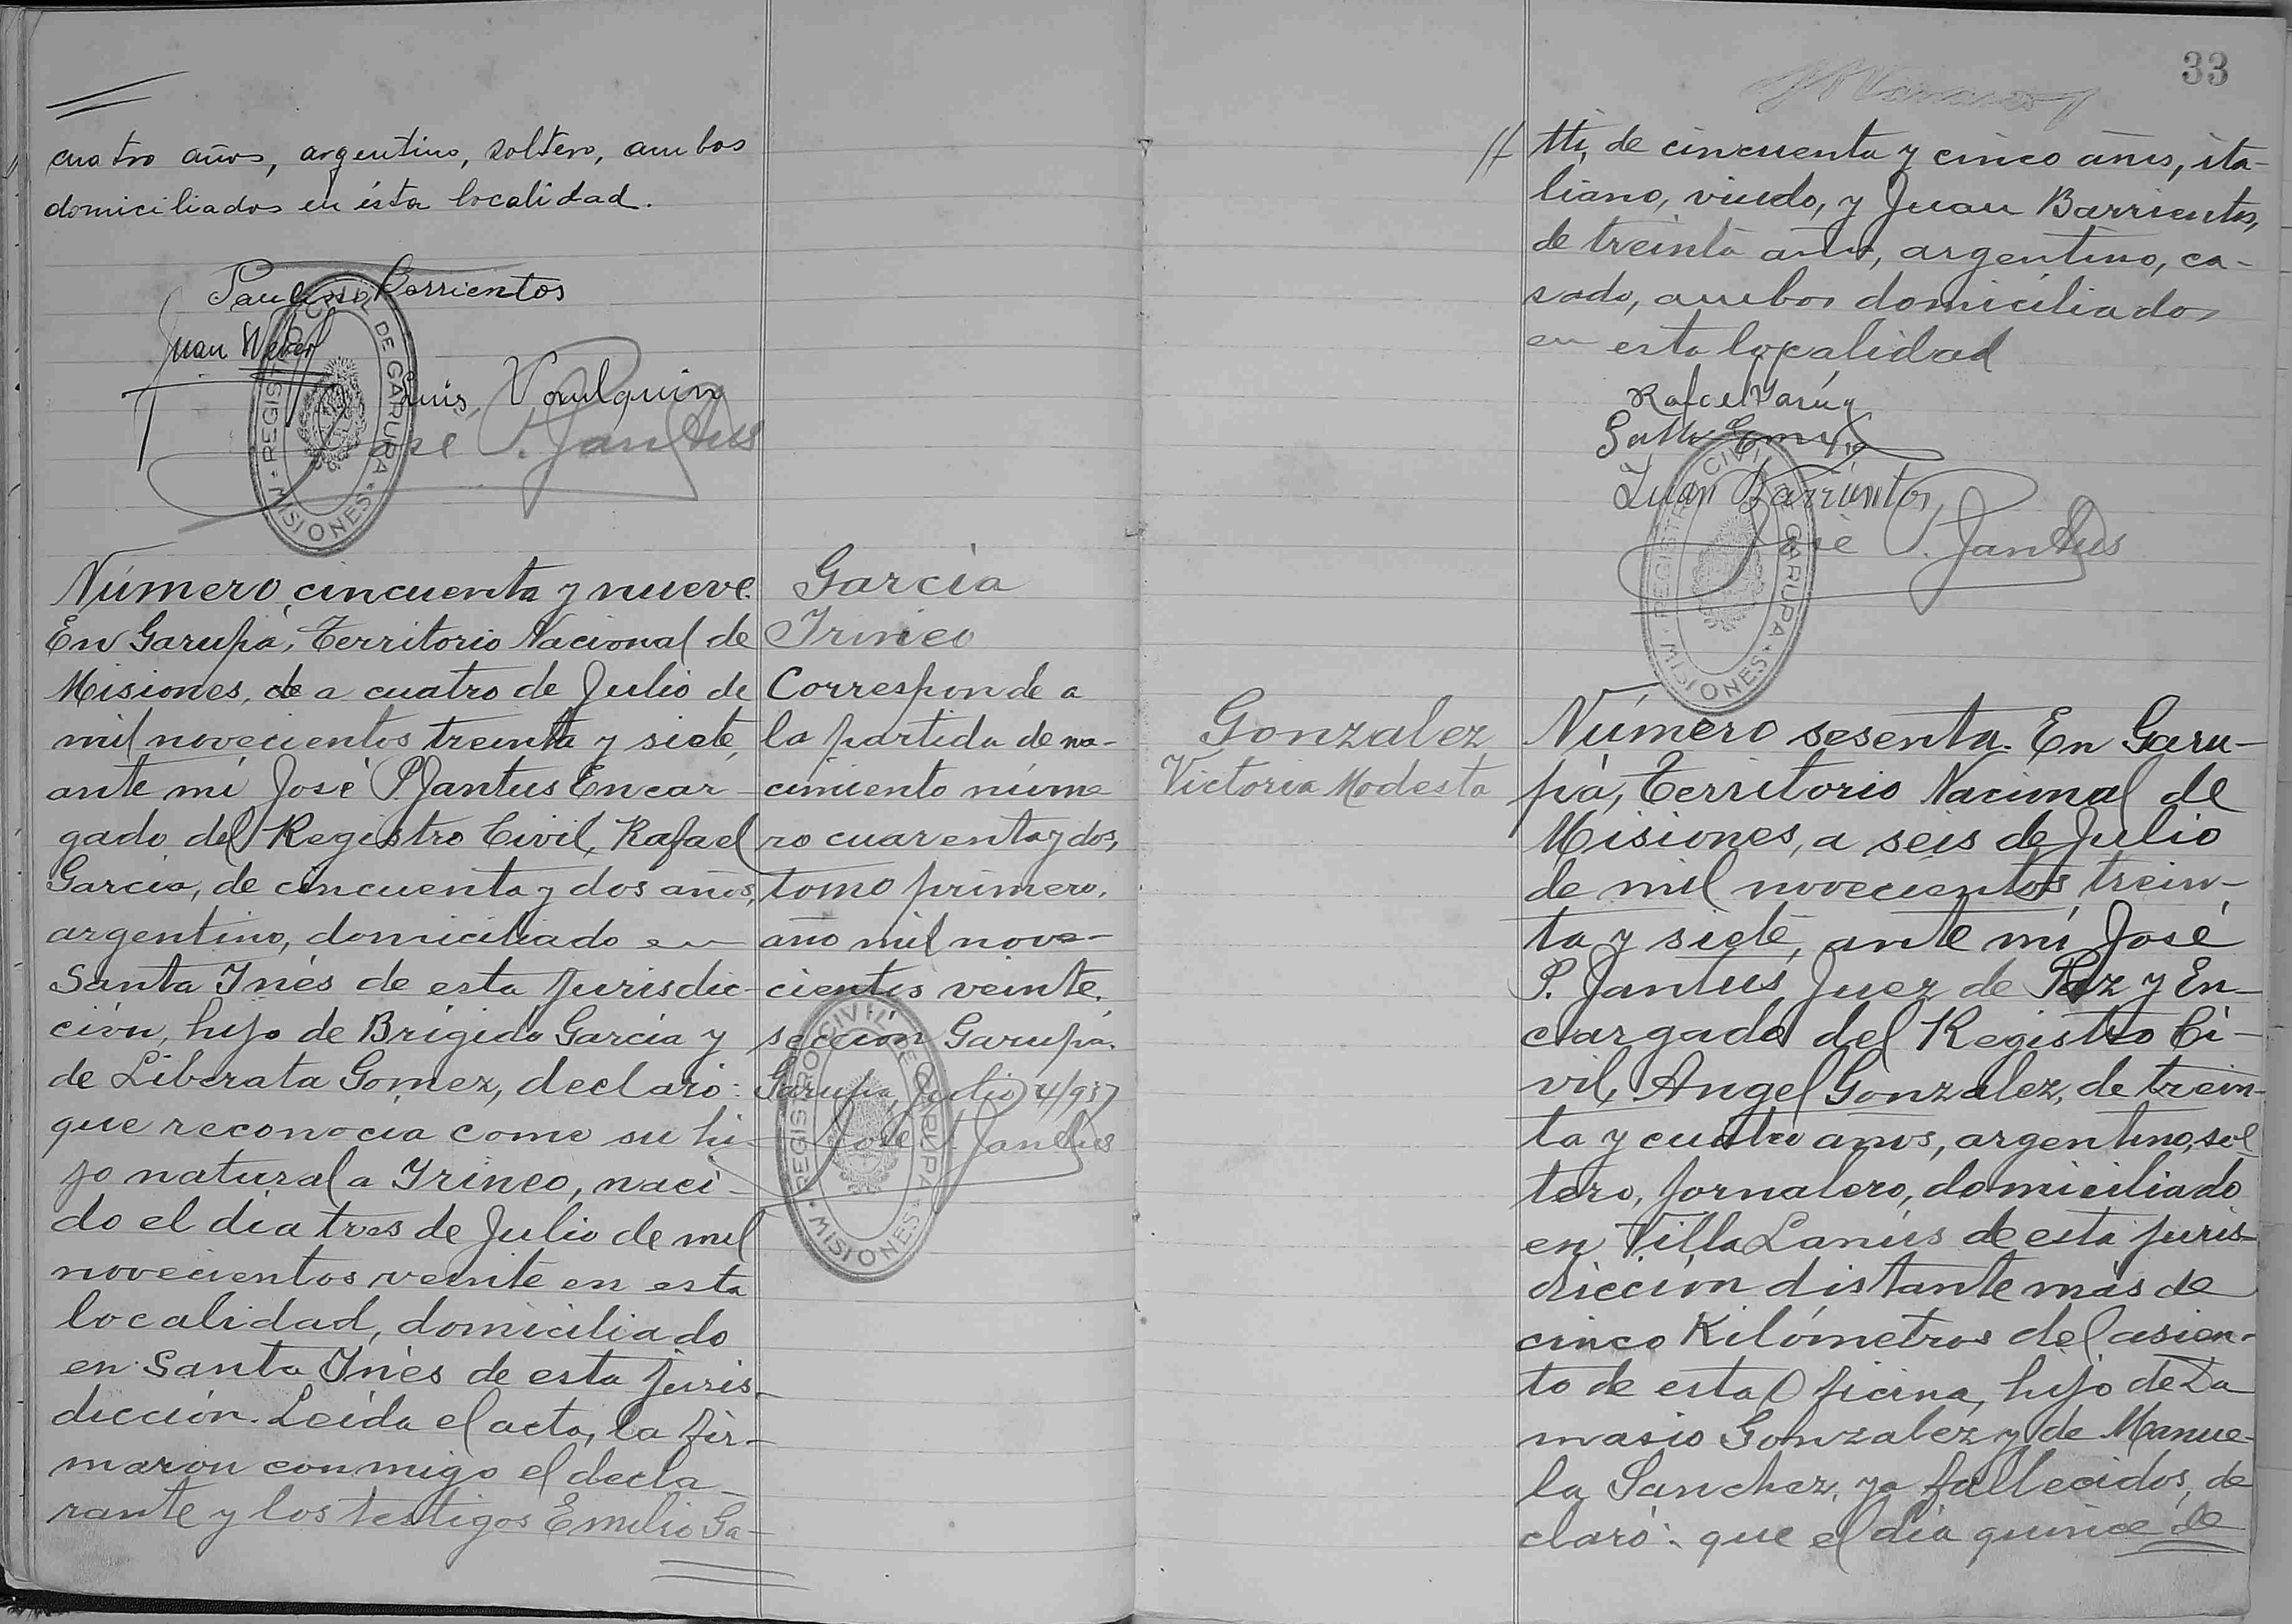 cuatro años, argentino, soltero, ambos
domiciliados en ésta localidad.
Paulino Barrientos
Juan Weber
Luis Voulquin
José P. Jantus
REGISTRO CIVIL DE GARUPA
MISIONES
Número cincuenta y nueve.
En Garupá, Territorio Nacional de
Misiones, de a cuatro de Julio de
mil novecientos treinta y siete,
ante mí José P. Jantus Encar-
gado del Registro Civil, Rafael
García, de cincuenta y dos años,
argentino, domiciliado en
Santa Inés de esta jurisdic-
ción, hijo de Brígido García y
de Liberata Gomez, declaró:
que reconocía como su hi-
jo natural a Irineo, naci-
do el día tres de Julio de mil
novecientos veinte en esta
localidad, domiciliado
en Santa Inés de esta juris-
dicción. Leída el acta, la fir-
maron conmigo el decla-
rante y los testigos Emilio Ga-
García
Irineo
Corresponde a
la partida de na-
cimiento núme
ro cuarenta y dos,
tomo primero,
año mil nove-
cientos veinte,
sección Garupá.
Garupá, Julio 4/937
José P. Jantus
REGISTRO CIVIL DE GARUPA
MISIONES
33
tti, de cincuenta y cinco años, ita-
liano, viudo, y Juan Barrientos,
de treinta años, argentino, ca-
sado, ambos domiciliados
en esta localidad
Rafael García
Juan Barrientos
José P. Jantus
REGISTRO CIVIL DE GARUPA
MISIONES
Gonzalez
Victoria Modesta
Número sesenta. En Garu-
pá, Territorio Nacional de
Misiones, a seis de Julio
de mil novecientos trein-
ta y siete, ante mí José
P. Jantus, Juez de Paz y En-
cargado del Registro Ci-
vil, Angel Gonzalez, de trein-
ta y cuatro años, argentino, sol
tero, jornalero, domiciliado
en Villa Lanús de esta juris-
dicción distante más de
cinco Kilómetros del asien-
to de esta Oficina, hijo de Da
masio Gonzalez y de Manue-
la Sanchez, ya fallecidos, de
claró: que el día quince de